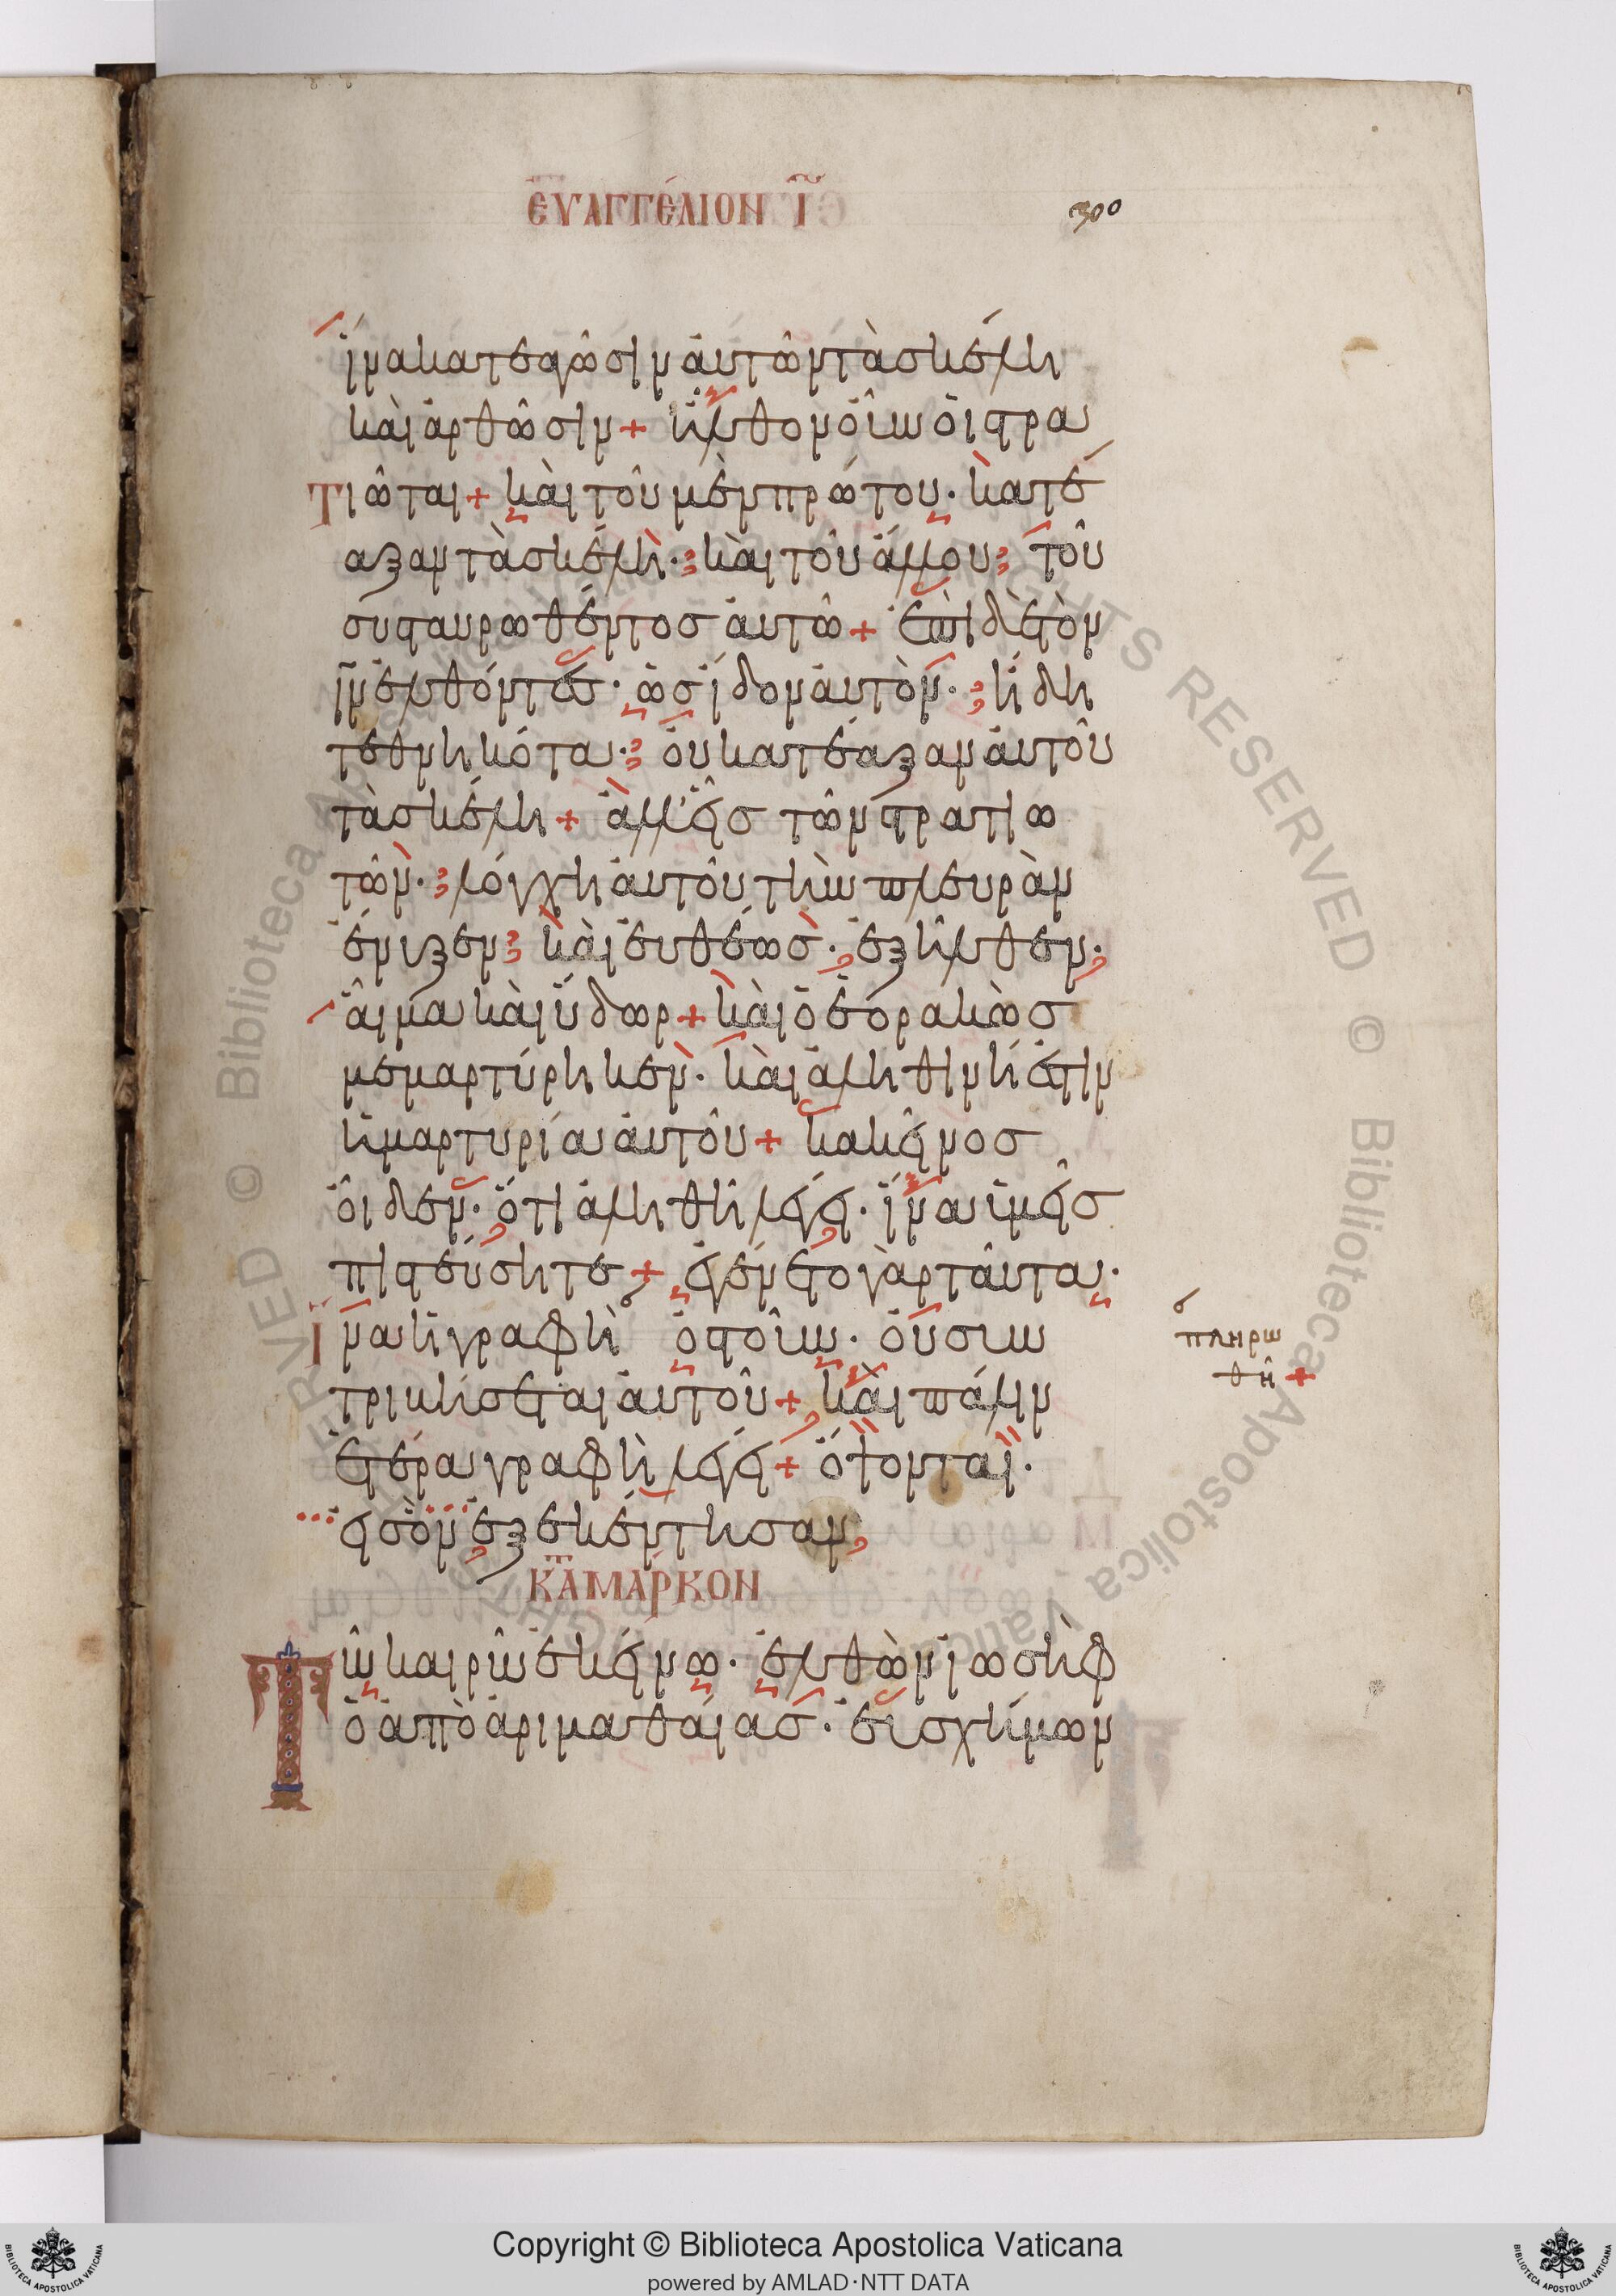 ΕΥΑΓΓΕΛΙΟΝ ΙΘ
300
ἵνα κατεαγῶσιν αὐτῶν τὰ σκέλη
καὶ ἀρθῶσιν + ἦλθον οὖν οἱ στρα
τιῶται + καὶ τοῦ μὲν πρώτου· κατέ
αξαν τὰ σκέλη· καὶ τοῦ ἄλλου τοῦ
συσταυρωθέντος αὐτῶ + ἐπὶ δὲ τὸν
ιν ἐλθόντες· ὡς ἴδον αὐτὸν· ἤδη
τεθνηκότα· οὐ κατέαξαν αὐτοῦ
τὰ σκέλη + ἀλλ' εἷς τῶν στρατιω
τῶν· λόγχη αὐτοῦ τὴν πλευρὰν
ἔνυξεν καὶ εὐθέως· ἐξῆλθεν·
αἷμα καὶ ὕδωρ + καὶ ὁ ἑορακὼς
μεμαρτύρηκεν· καὶ ἀληθινή ἐστιν
ἡ μαρτυρία αὐτοῦ + κακεῖνος
οἶδεν· ὅτι ἀληθῆ λέγει· ἵνα ὑμεῖς
πιστεύσητε + ἐγένετο γὰρ ταῦτα·
ἵνα ἡ γραφὴ ὀστοῦν· οὐ συν
τριβήσεται αὐτοῦ + καὶ πάλιν
ἑτέρα γραφὴ λέγει + ὄψονται·
εἰς ὃν ἐξεκέντησαν
πληρω
θῆ +
ΚΑΤ ΜΑΡΚΟΝ
Τῶ καιρῶ ἐκείνω· ἐλθὼν ἰωσὴφ
ὁ ἀπὸ ἀριμαθαίας· εὐσχήμων
Copyright © Biblioteca Apostolica Vaticana
powered by AMLAD·NTT DATA